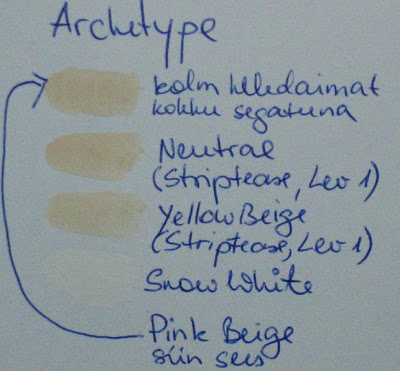 Archetype
kolm heledaimat
kokku segatuna
Neutral
(Striptease, Lev 1)
Yellow Beige
(Striptease, Lev 1)
Snow White
Pink Beige
siin sees